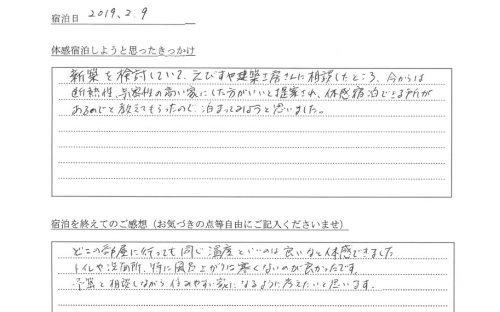 宿泊日 2019.2.9
体感宿泊しようと思ったきっかけ
新築を検討していて、えびすや建築工房さんに相談したところ、今からは
断熱性、気密性の高い家にした方がいいと提案され、体感宿泊できる所が
あるのでと教えてもらったので、泊まってみようと思いました。
宿泊を終えてのご感想（お気づきの点等自由にご記入くださいませ）
どこの部屋に行っても同じ温度というのは良いなと体感できました
トイレや洗面所、特に風呂上がりに寒くないのが良かったです。
予算と相談しながら住みやすい家になるように考えたいと思います.